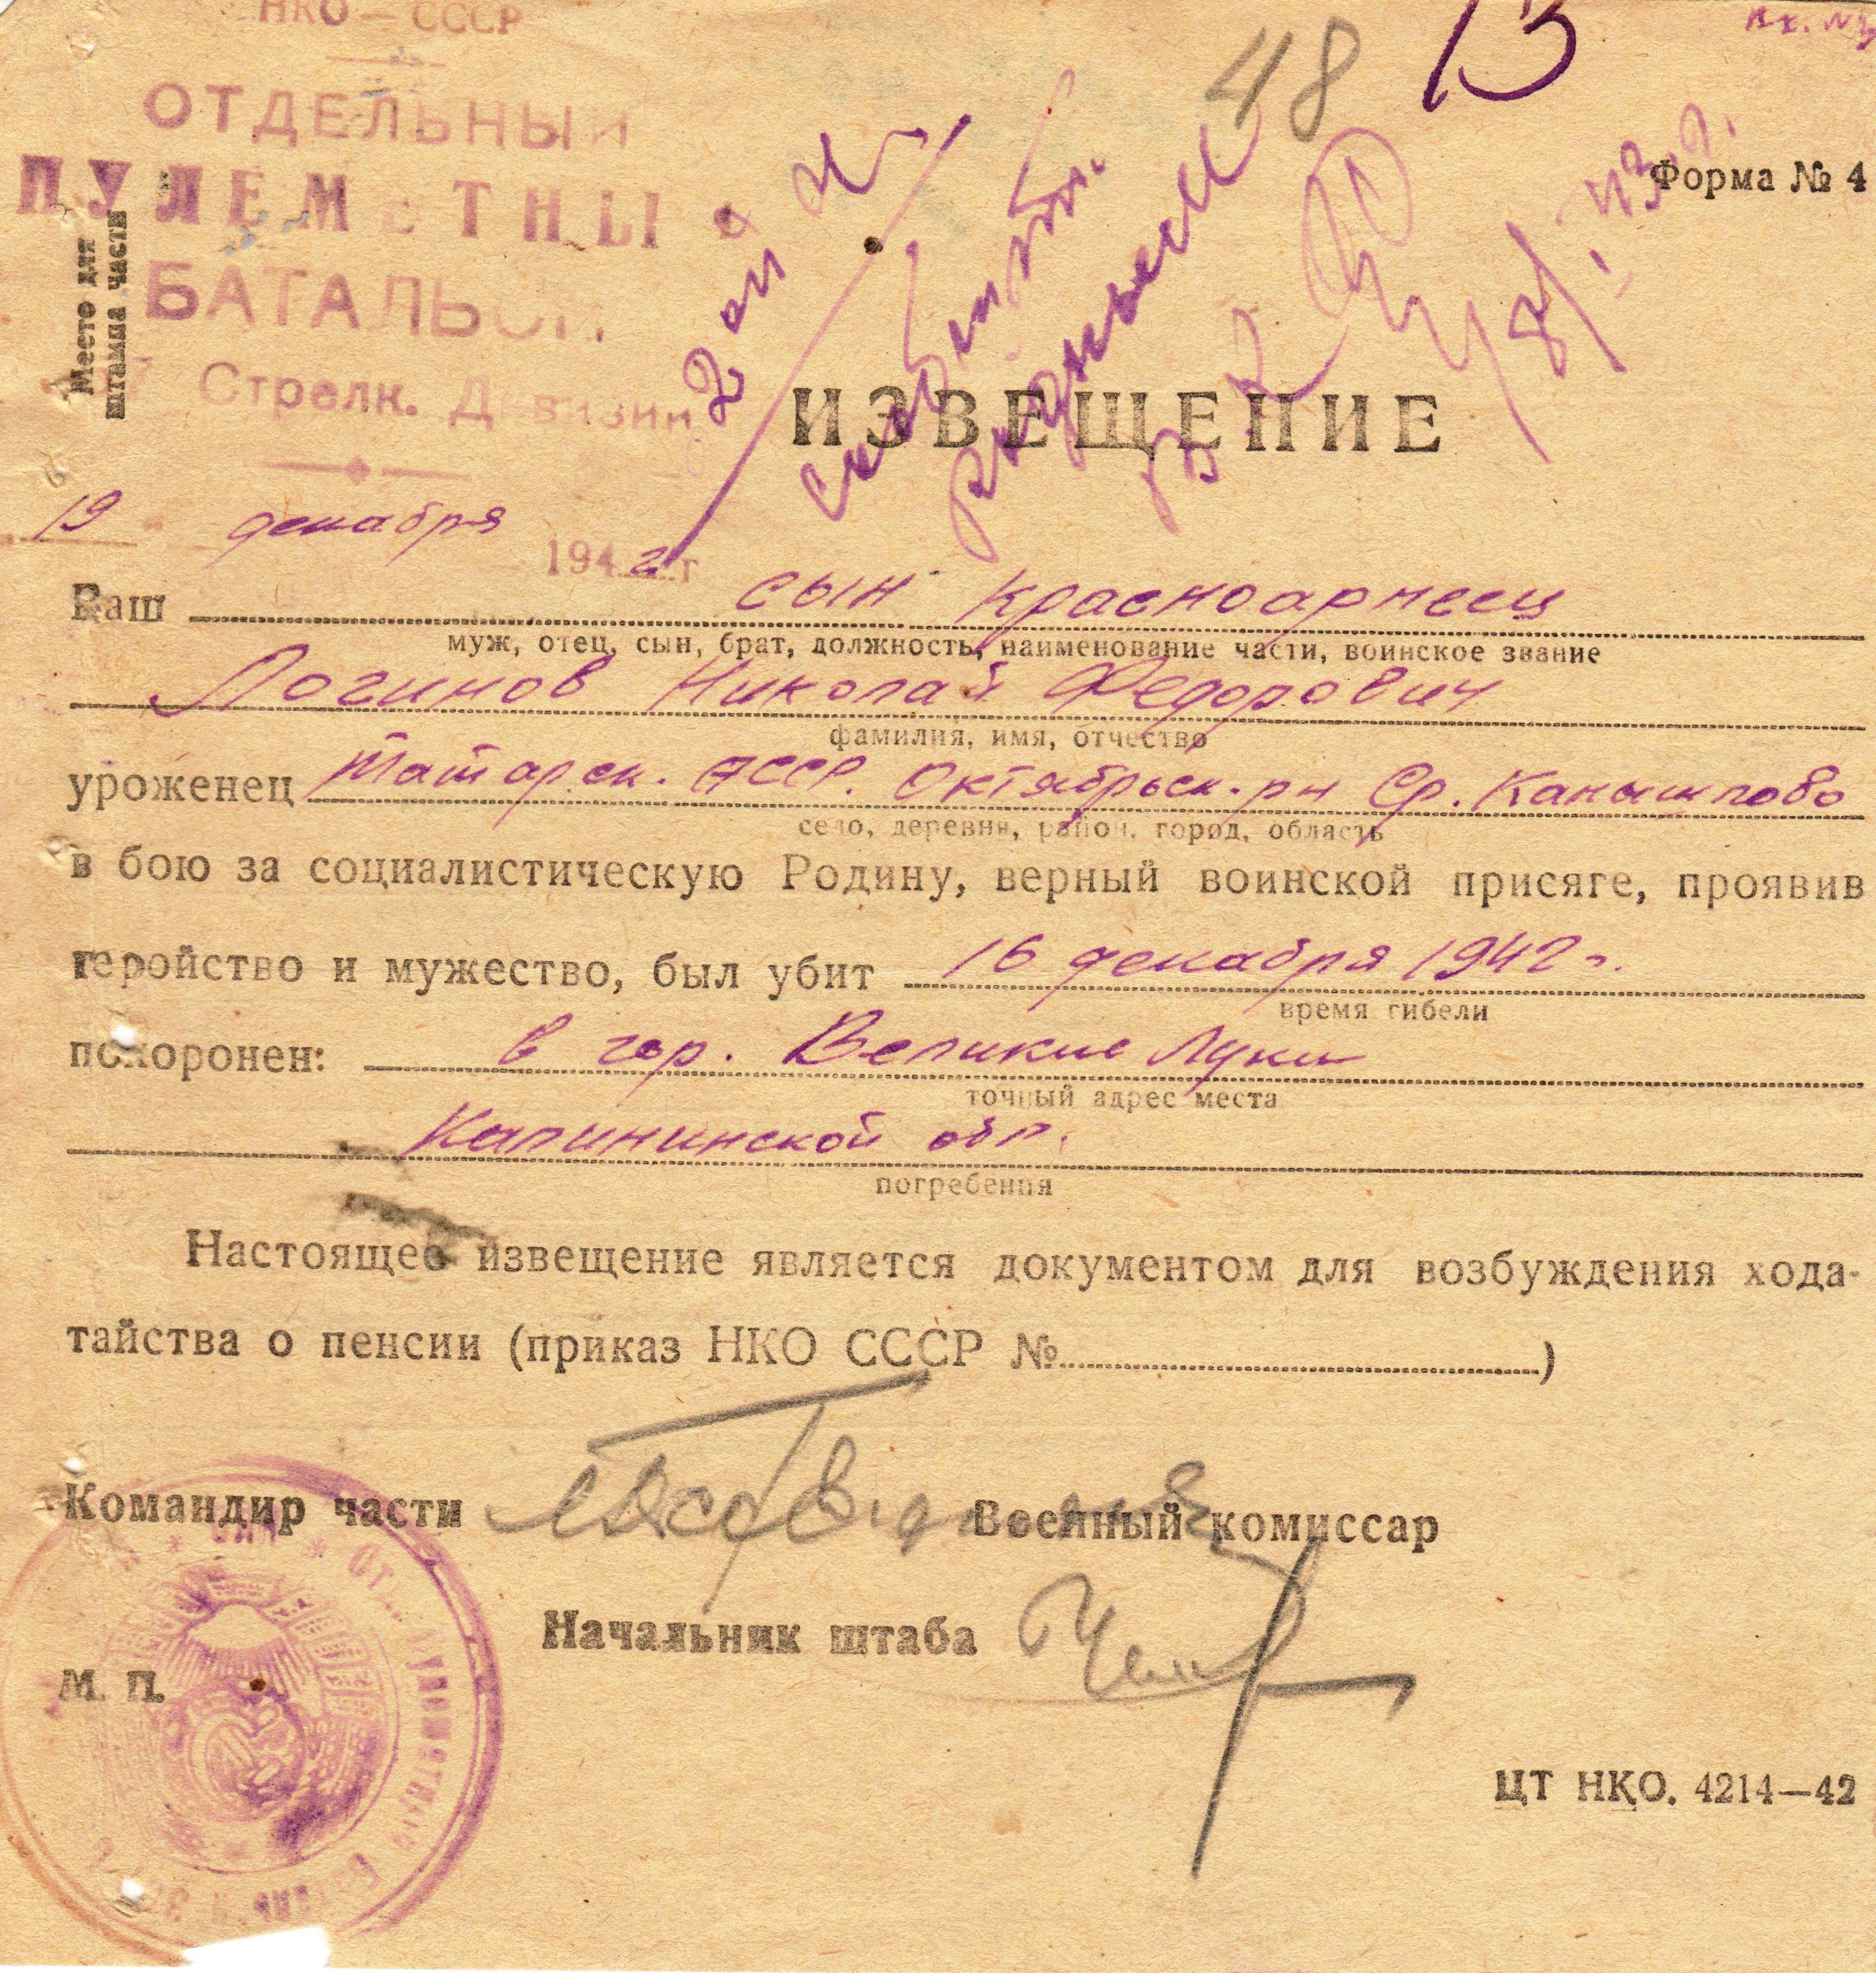 НКО — СССР
ОТДЕЛЬНЫЙ
ПУЛЕМЕТНЫЙ
БАТАЛЬОН
Стрелк. Дивизии
Место для
штампа части
48
13
Форма № 4
8/I-43 г.
ИЗВЕЩЕНИЕ
19 декабря 1942 г
Ваш сын красноармеец
муж, отец, сын, брат, должность, наименование части, воинское звание
Логинов Николай Федорович
фамилия, имя, отчество
уроженец Татарск. АССР. Октябрьск. рн Ср. Камышлово
село, деревня, район, город, область
в бою за социалистическую Родину, верный воинской присяге, проявив
геройство и мужество, был убит 16 декабря 1942 г.
время гибели
похоронен: в гор. Великие Луки
точный адрес места
Калининской обл.
погребения
Настоящее извещение является документом для возбуждения хода-
тайства о пенсии (приказ НКО СССР № )
Командир части Военный комиссар
Начальник штаба
М. П.
ЦТ НКО. 4214—42